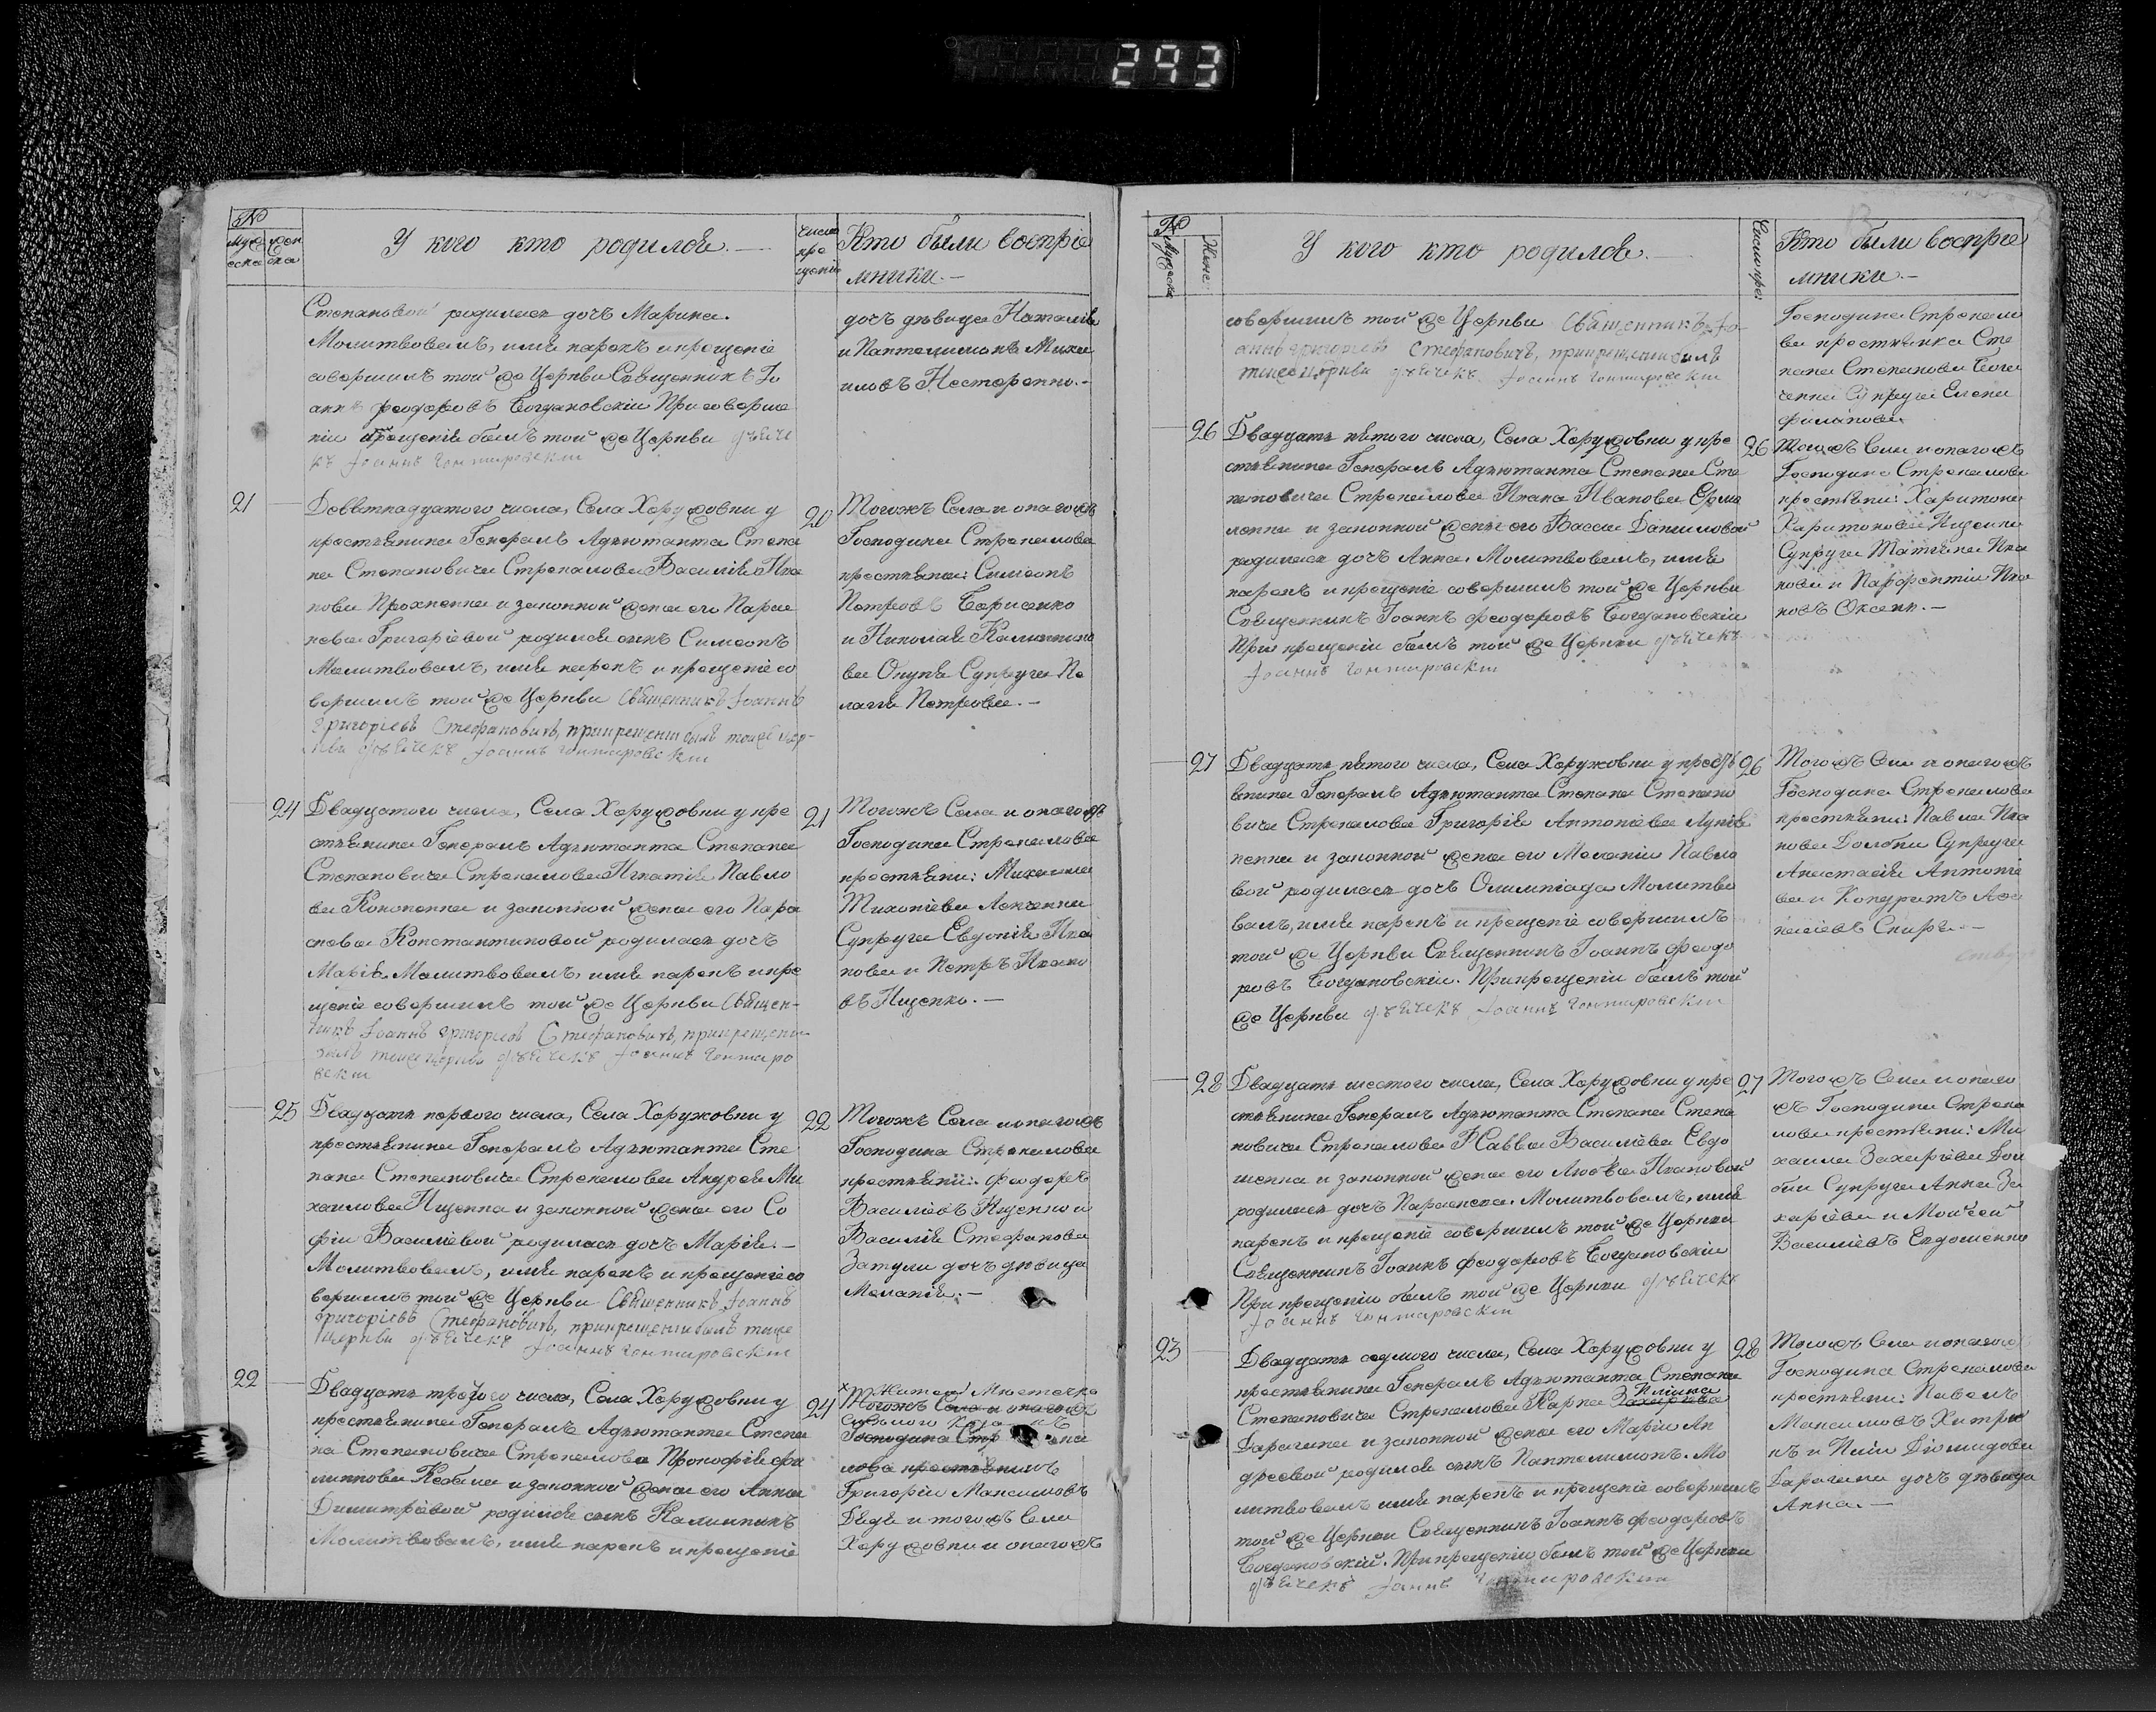 293
№
Муже
ска
Жен
ска
У кого кто родился.
Число
кре
щенія
Кто были воспріе
мники.
Степановой родилась дочь Марина.
Молитвовалъ, имя нарекъ и крещеніе
совершилъ той же Церкви Священникъ Іо
аннъ Феодоровъ Богдановскій При соверше
ніи крещенія былъ той же Церкви дьяче
къ Іоаннъ Гонтаровскій
дочь дѣвица Наталія
и Пантелимонъ Миха
иловъ Нестеренко.
21
Девятнадцатого числа, Села Хоружовки у
крестьянина Генералъ Адъютанта Степа
на Степановича Стрекалова Василія Ива
нова Прохненка и законной жены его Парас
кевы Григоріевой родился сынъ Симеонъ
Молитвовалъ, имя нарекъ и крещеніе со
вершилъ той же Церкви Священникъ Іоаннъ
Григоріевъ Стефановичъ, при крещеніи былъ тойже Цер-
кви дьячекъ Іоаннъ Гонтаровскій
20
Тогожъ Села и онагожъ
Господина Стрекалова
крестьяне: Симеонъ
Петровъ Борисенко
и Николая Калинико
ва Супруга Пе
лагія Петрова.
24
Двадцатого числа, Села Хоружовки у кре
стьянина Генералъ Адъютанта Степана
Степановича Стрекалова Игнатія Павло
ва Кононенка и законной жены его Пара
скевы Константиновой родилась дочь
Марія Молитвовалъ, имя нарекъ и кре
щеніе совершилъ той же Церкви Священ-
никъ Іоаннъ Григоріевъ Стефановичъ, при крещеніи
былъ тойже церкви дьячекъ Іоаннъ Гонтаро
вскій
21
Тогожъ Села и онагожъ
Господина Стрекалова
крестьяне: Михаила
Тихоніева
Супруга Евдокія Ива
нова и Петръ Ивано
въ Ищенко.
25
Двадцать первого числа, Села Хоружовки у
крестьянина Генералъ Адъютанта Сте
пана Степановича Стрекалова Андрея Ми
хаилова Ищенка и законной жены его Со
фіи Василіевой родилась дочь Марія.
Молитвовалъ, имя нарекъ и крещеніе со
вершилъ той же Церкви Священникъ Іоаннъ
Григоріевъ Стефановичъ, при крещеніи былъ тойже
Церкви дьячекъ Іоаннъ Гонтаровскій
22
Тогожъ Села и онагожъ
Господина Стрекалова
крестьяне: Феодоръ
Василіевъ Ищенко и
Василія Стефанова
Затули дочь дѣвица
Меланія.
22
Двадцать третого числа, Села Хоружовки у
крестьянина Генералъ Адъютанта Степа
на Степановича Стрекалова Прокофія Фи
липпова Кобыли и законной жены его Анны
Димитріевой родился сынъ Калинникъ
Молитвовалъ, имя нарекъ и крещеніе
24
Житель Мѣстечка
Тогожъ Села и онагожъ
Господина Стр
лова крестьянинъ
Григорій Максимовъ
Бѣда и тогожъ Села
Хоружовки и онагожъ
№
Мужеска
Женс
У кого кто родился.
Число кре
Кто были воспріе
мники.
совершилъ той же Церкви Священникъ Іо-
аннъ Григоріевъ Стефановичъ, при крещеніи былъ
тойже церкви дьячекъ Іоаннъ Гонтаровскій
Господина Стрекало
ва крестьянка Сте
пана Степанова
Супруга Елена
Филипова
26
Двадцать пятого числа, Села Хоружовки у кре
стьянина Генералъ Адъютанта Степана Сте
пановича Стрекалова Ивана Иванова Ярма
ленка и законной жены его Вассы Даниловой
родилась дочь Анна. Молитвовалъ, имя
нарекъ и крещеніе совершилъ той же Церкви
Священникъ Іоаннъ Феодоровъ Богдановскій
При крещеніи былъ той же Церкви дьячекъ
Іоаннъ Гонтаровскій
26
Тогожъ Села и онагожъ
Господина Стрекалова
крестьяне: Харитона
Харитонова Ищенка
Супруга Татіана Ива
нова и Парфентій Ива
новъ
27
Двадцать пятого числа, Села Хоружовки у кресть
янина Генералъ Адъютанта Степана Степано
вича Стрекалова Григорія Антоніева
ненка и законной жены его Меланіи Павло
вой родилась дочь Олимпіада Молитво
валъ, имя нарекъ и крещеніе совершилъ
той же Церкви Священникъ Іоаннъ Феодо
ровъ Богдановскій. При крещеніи былъ той
же Церкви дьячекъ Іоаннъ Гонтаровскій
26
Тогожъ Села и онагожъ
Господина Стрекалова
крестьяне: Павла Ива
нова Долбни Супруга
Анастасія Антоніе
ва и Кондратъ Афа
насіевъ
28
Двадцать шестого числа, Села Хоружовки у кре
стьянина Генералъ Адъютанта Степана Степа
новича Стрекалова Саввы Василіева Евдо
шенка и законной жены его Любви Ивановой
родилась дочь Параскева. Молитвовалъ, имя
нарекъ и крещеніе совершилъ той же Церкви
Священникъ Іоаннъ Феодоровъ Богдановскій
При крещеніи былъ той же Церкви дьячекъ
Іоаннъ Гонтаровскій
27
Тогожъ Села и онаго
жъ Господина Стрека
лова крестьяне: Ми
хаила Захаріева Дол
бни Супруга Анна За
харіева и Мойсей
Василіевъ Евдошенко
23
Двадцать седмого числа, Села Хоружовки у
крестьянина Генералъ Адъютанта Степана
Степановича Стрекалова Карпа Захаріева
Ильина
Дарагана и законной жены его Маріи Ан
дреевой родился сынъ Пантелимонъ. Мо
литвовалъ имя нарекъ и крещеніе совершилъ
той же Церкви Священникъ Іоаннъ Феодоровъ
Богдановскій. При крещеніи былъ той же Церкви
дьячекъ Іоаннъ Гонтаровскій
28
Тогожъ Села и онагожъ
Господина Стрекалова
крестьяне: Павелъ
Максимовъ
и Діомидова
Дарагана дочь дѣвица
Анна.